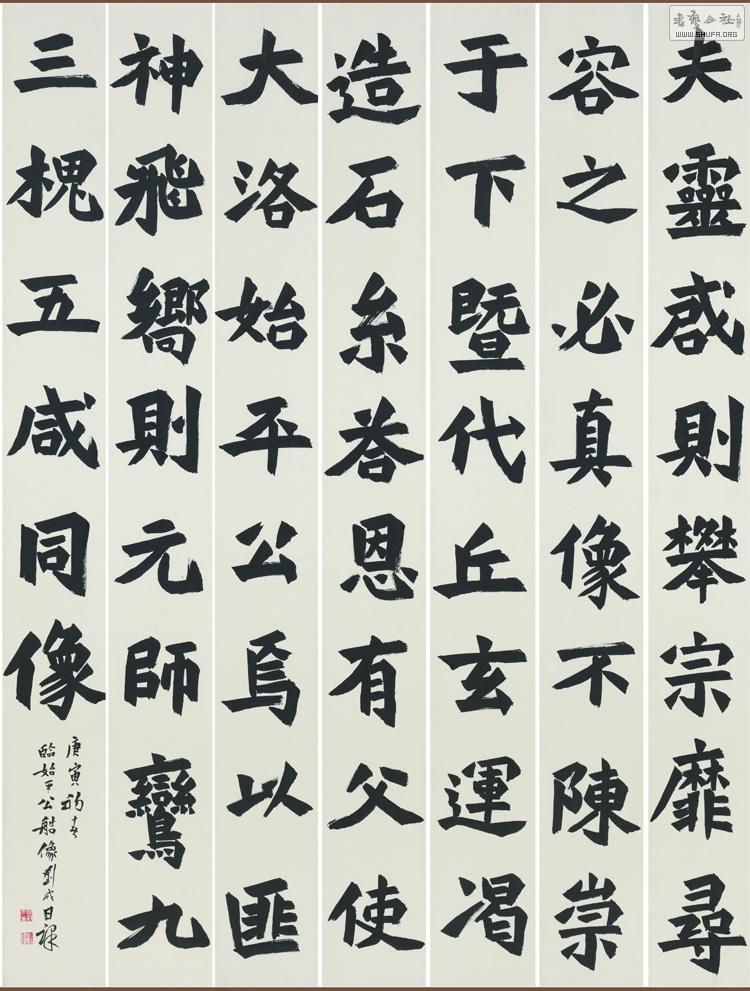 書藝公社
WWW.SHUFA.ORG
夫靈感則攀宗靡尋
容之必真像不陳崇
于下暨代丘玄運渴
造石糸荅恩有父使
大洛始平公焉以匪
神飛嚮則元師鸞九
三槐五咸同像
庚寅初春
臨始平公艁像劉成日禄